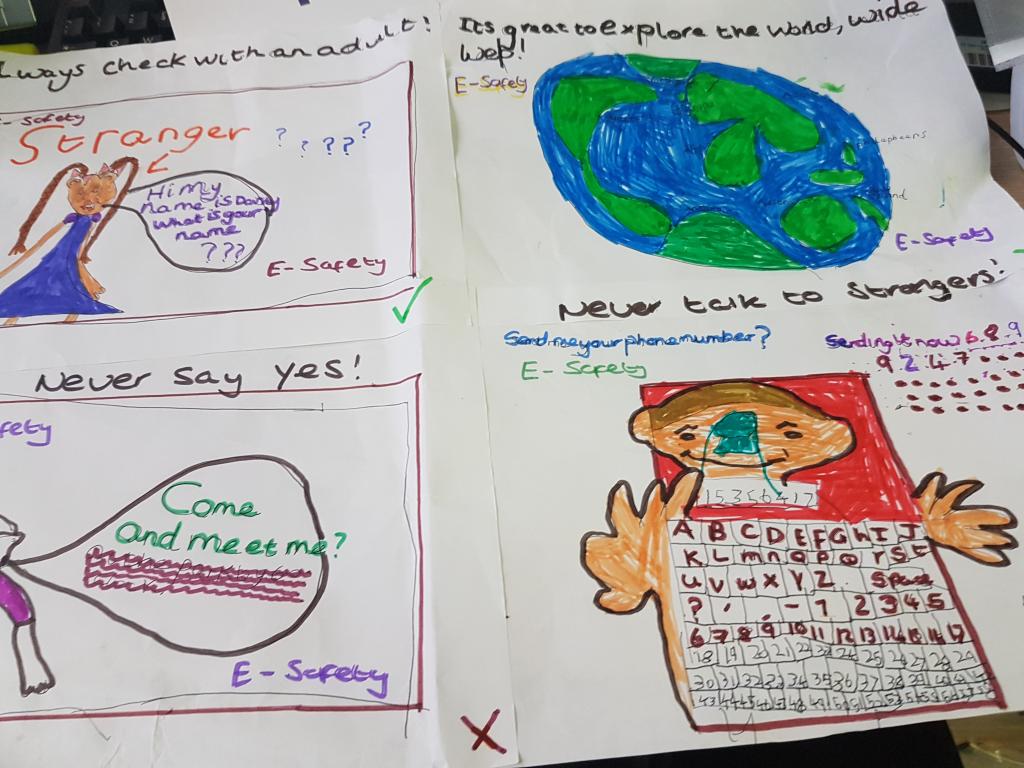 Always check with an adult!
E-Safety
Stranger
? ? ? ? ?
Hi my
name is Daisy
what is your
name
???
E-Safety
It's great to explore the world, wide
web!
E-Safety
E-Safety
Never say yes!
fety
Come
and meet me?
E-Safety
Never talk to strangers!
Send me your phone number?
Sending it now 6.8.9
9.2.4.7
E-Safety
15356417
A B C D E F G H I J
K L m n o p Q r s t
u v w x y z . Space
? ' . - 1 2 3 4 5
6 7 8 9 10 11 12 13 14 15 16 17
18 19 20 21 22 23 24 25 26 27 28 29
30 31 32 33 34 35 36 37 38 39 40 41